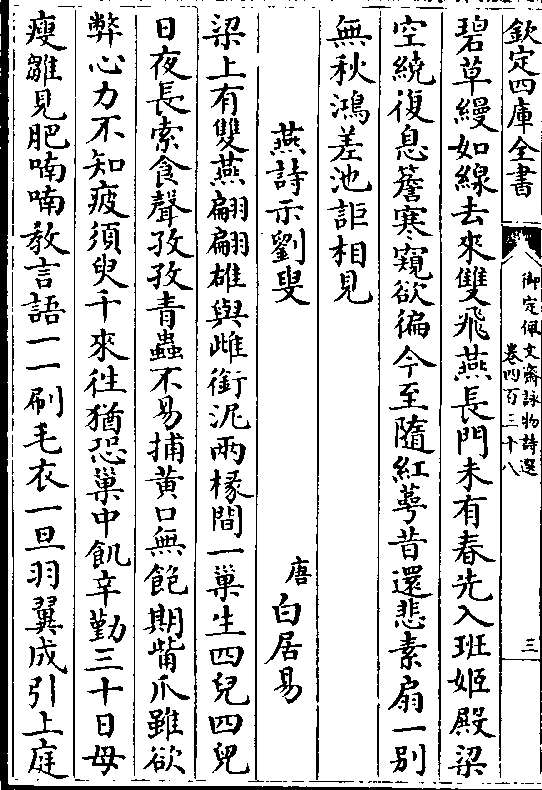 欽定四庫全書
御定佩文齋詠物詩選
卷四百三十八
三
碧草縵如線去來雙飛燕長門未有春先入班姬殿梁
空繞復息簷寒窺欲徧今至隨紅萼昔還悲素扇一别
無秋鴻差池詎相見
燕詩示劉叟
唐 白居易
梁上有雙燕翩翩雄與雌銜泥兩椽間一巢生四兒四兒
日夜長索食聲孜孜青蟲不易捕黄口無飽期觜爪雖欲
弊心力不知疲須臾千來往猶恐巢中飢辛勤三十日母
瘦雛見肥喃喃教言語一一刷毛衣一旦羽翼成引上庭